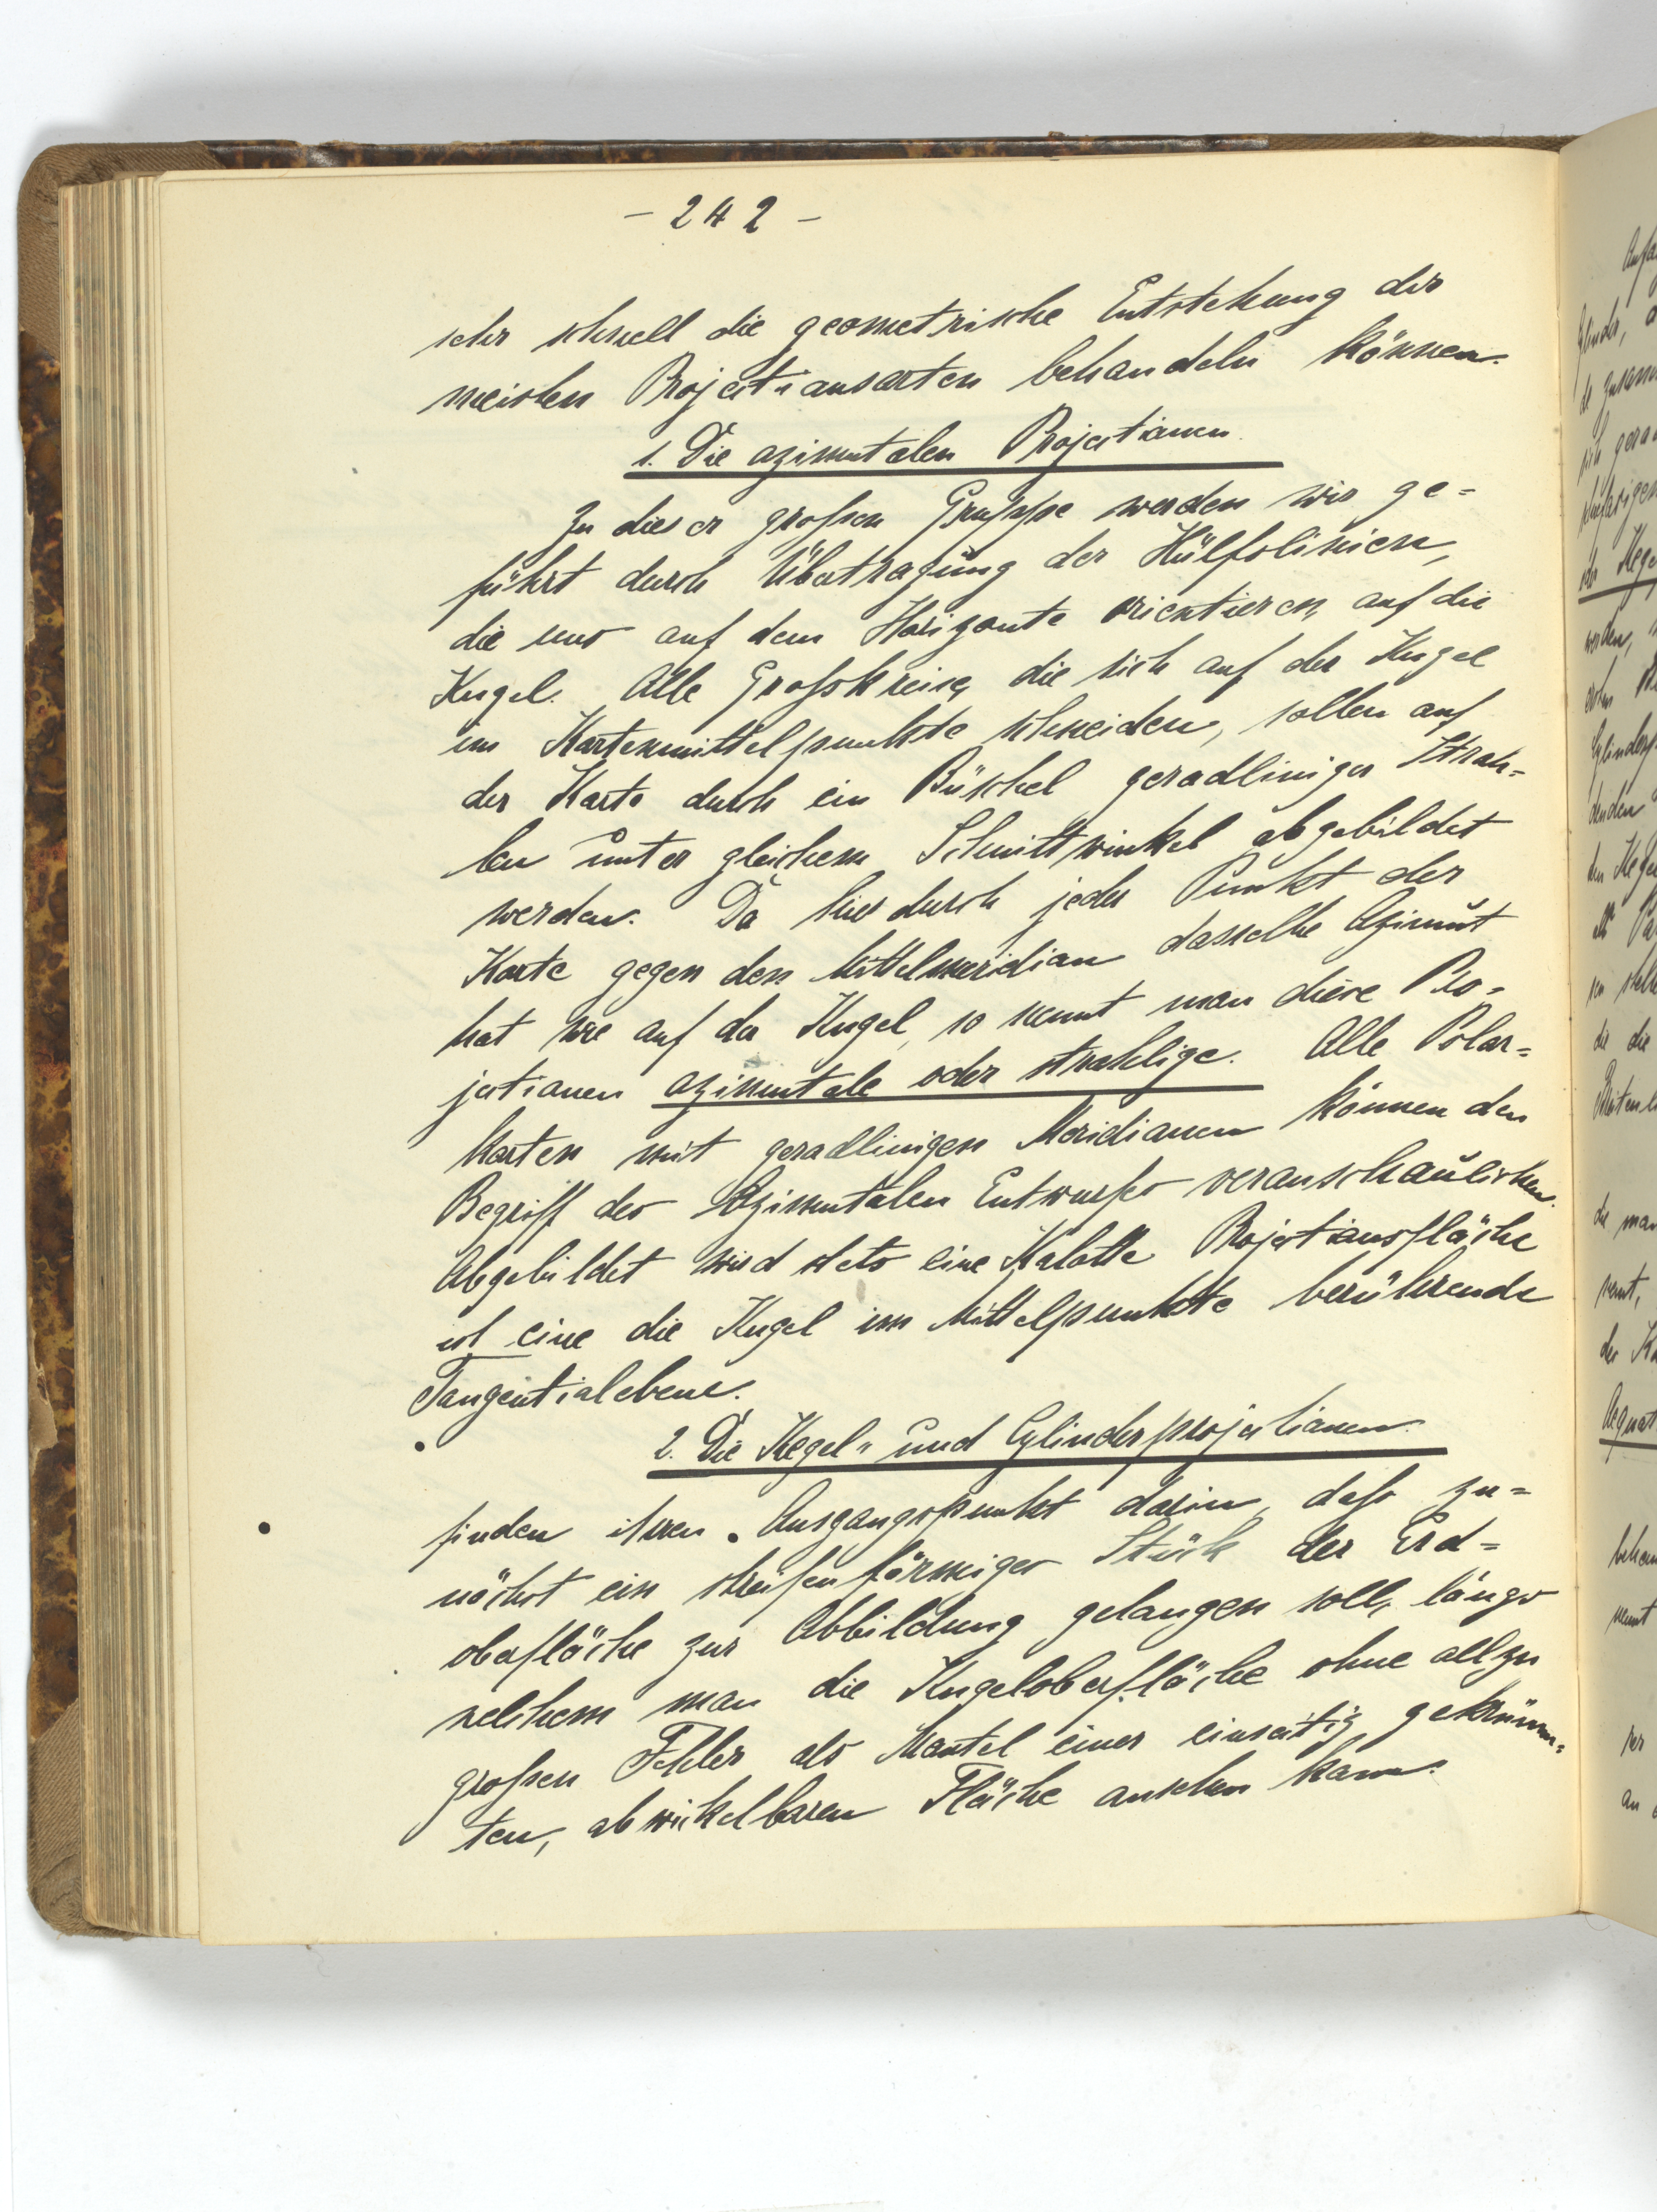 - 242 -
sehr schnell die geometrische Entstehung der
meisten Projectionsarten behandeln können.
1. Die azimutalen Projectionen.
Zu dieser großen Gruppe werden wir ge=
führt durch Übertragung der Hülfslinien,
die uns auf dem Horizonte orientieren, auf die
Kugel. Alle Großkreise, die sich auf der Kugel
im Kartenmittelpunkte schneiden, sollen auf
der Karte durch ein Büschel geradliniger Strah=
len unter gleichem Schnittwinkel abgebildet
werden. Da hierdurch jeder Punkt der
Karte gegen den Mittelmeridian dasselbe Azimut
hat wie auf der Kugel, so nennt man diese Pro=
jectionen azimutale oder strahlige. Alle Polar=
karten mit geradlinigen Meridianen können den
Begriff des Azimutalen Entwurfes veranschaulichen.
Abgebildet wird stets eine Kalotte Projectionsfläche
ist eine die Kugel im Mittelpunkte berührende
Tangentialebene.
2. Die Kegel= und Cylinderprojectionen.
finden ihren Ausgangspunkt darin, daß zu=
nächst ein streifenförmiges Stück der Erd=
oberfläche zur Abbildung gelangen soll, längs
welchem man die Kugeloberfläche ohne allzu
großen Fehler als Mantel einer einseitig gekrümm=
ten, abwickelbaren Fläche ansehen kann.